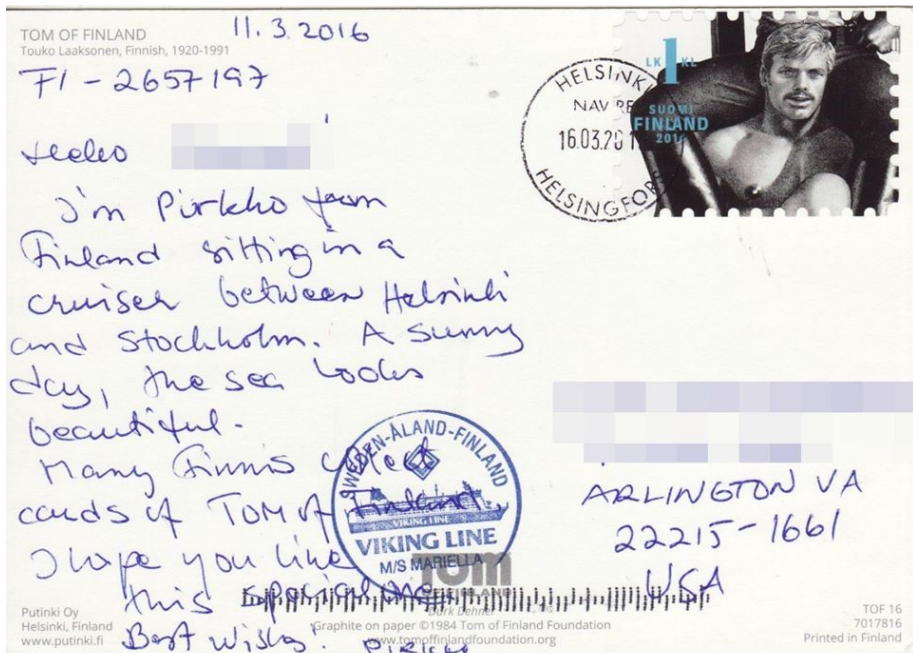 TOM OF FINLAND
Touko Laaksonen, Finnish, 1920-1991
11.3.2016
FI-2657197
Hello
I'm Pirkko from
Finland sitting in a
cruiser between Helsinki
and Stockholm. A sunny
day, the sea looks
beautiful.
Many Finnis collect
cards of TOM of Finland.
I hope you like
this special one
Best Wishes!
Pirkko
HELSINKI
NAV RE
16.03.201
HELSINGFORS
1
LK KL
SUOMI
FINLAND
2014
SWEDEN-ÅLAND-FINLAND
VIKING LINE
VIKING LINE
M/S MARIELLA
ARLINGTON VA
22215-1661
USA
TOM
OF FINLAND
Durk Dehner
Putinki Oy
Helsinki, Finland
www.putinki.fi
Graphite on paper ©1984 Tom of Finland Foundation
www.tomoffinlandfoundation.org
TOF 16
7017816
Printed in Finland